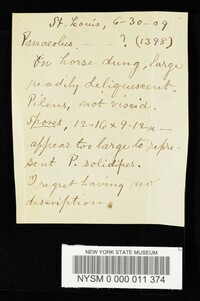 St. Louis, 6-30-09
Panaeolus, — ? (1398)
On horse dung, large
readily deliquescent.
Pileus, not viscid.
Spores, 12-16 x 9-12 µ —
appear too large to repre-
sent P. solidipes.
I regret having no
description.
NEW YORK STATE MUSEUM
NYSM 0 000 011 374